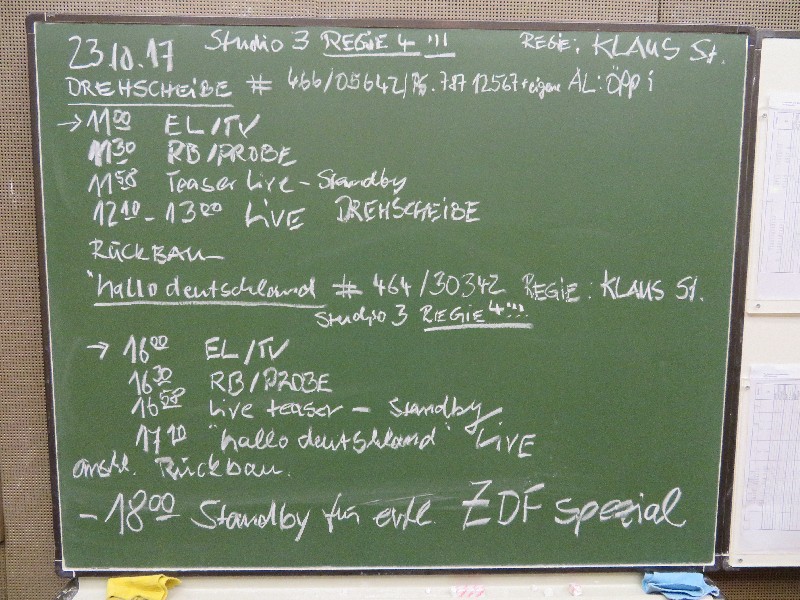 23.10.17 Studio 3 REGIE 4 !!! REGIE: KLAUS St.
DREHSCHEIBE # 466/05642/ 787 12567 + eigene AL: ÖPPi
→ 11 00 EL/TV
11 30 RB/PROBE
11 58 Teaser Live - Standby
12 10 - 13 00 LIVE DREHSCHEIBE
RÜCKBAU
"hallo deutschland # 464/30342 REGIE: KLAUS St.
Studio 3 REGIE 4 !!!
→ 16 00 EL/TV
16 30 RB/PROBE
16 58 Live teaser - Standby
17 10 "hallo deutschland" LIVE
anschl. Rückbau.
- 18 00 Standby für evtl. ZDF spezial